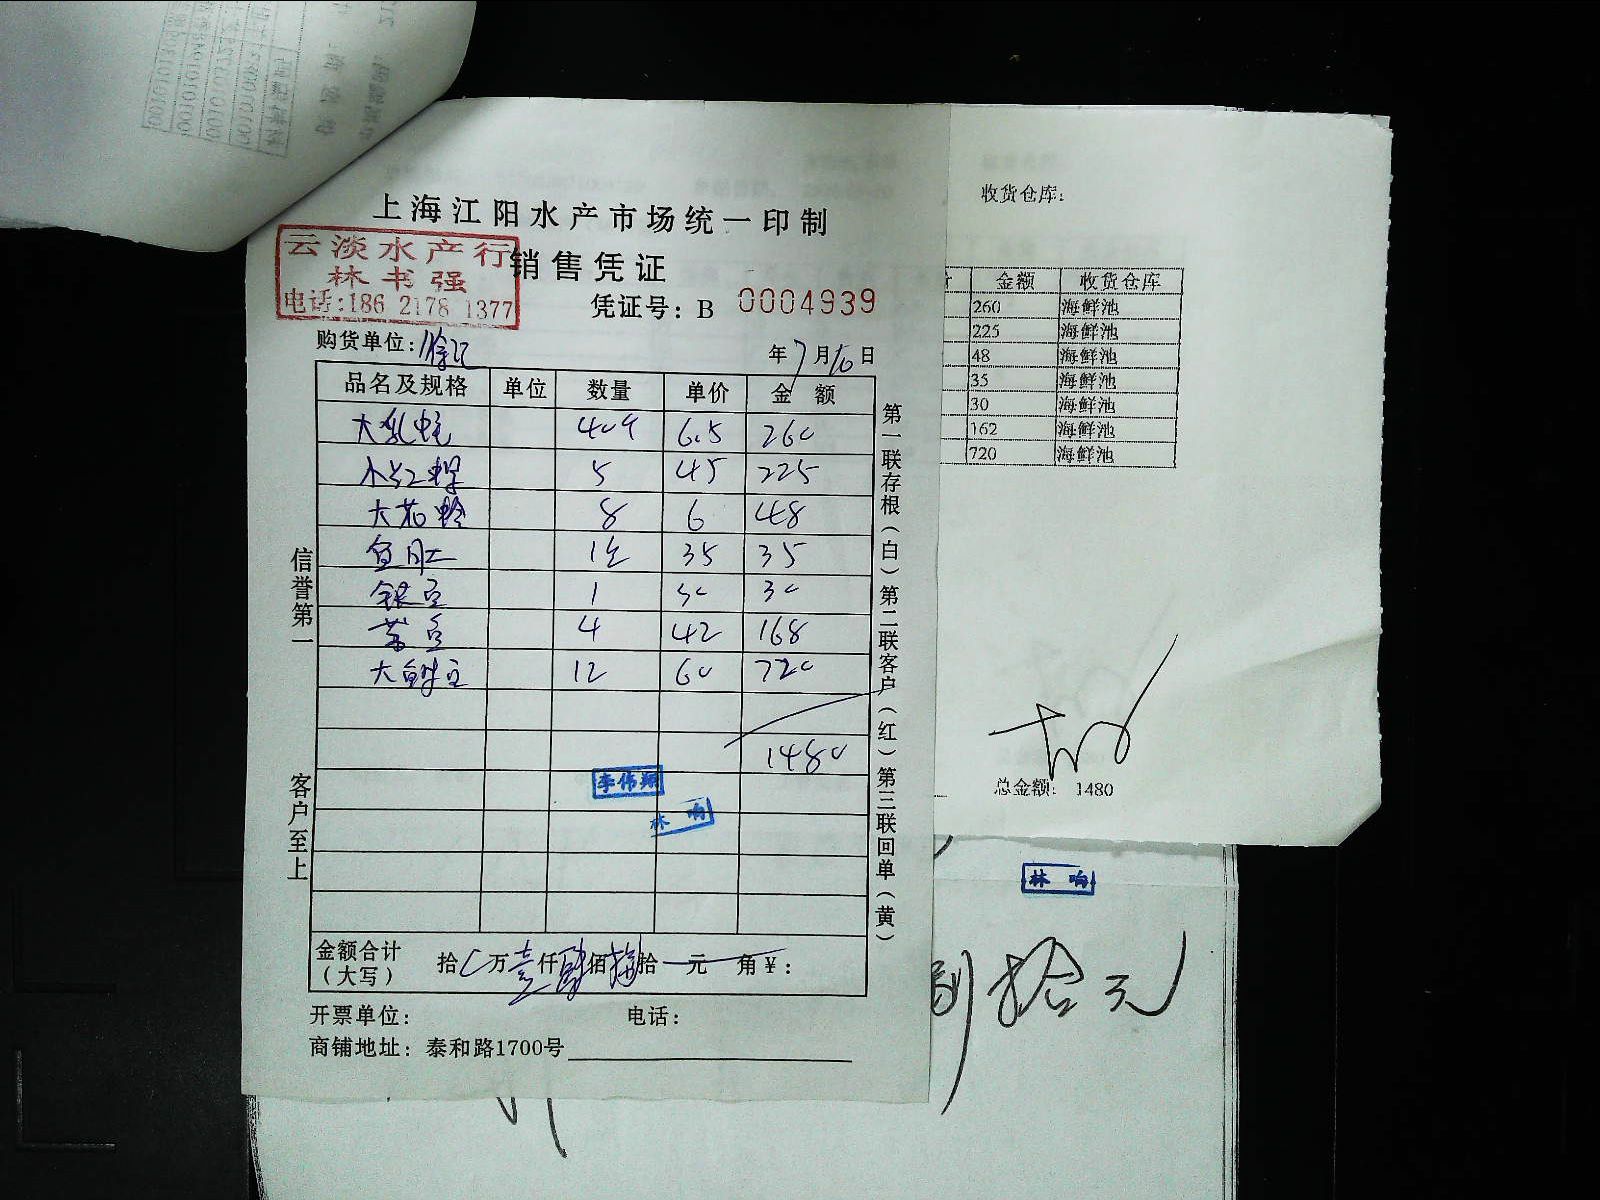 上海江阳水产市场统一印制
云淡水产行
林书强
电话:186 2178 1377
销售凭证
凭证号: B 0004939
购货单位: 徐记
年 7 月 10 日
品名及规格 单位 数量 单价 金额
大乳蛏 40 6.5 260
小红螺 5 45 225
大花蛤 8 6 48
鱼肚 1 35 35
银豆 1 30 30
4 42 168
大鲜豆 12 60 720
1480
李伟翔
林响
金额合计
(大写)
拾 万 壹 仟 肆 佰 捌 拾 元 角 ¥:
开票单位: 电话:
商铺地址: 泰和路1700号
信誉第一
客户至上
第一联存根(白)第二联客户(红)第三联回单(黄)
收货仓库:
金额 收货仓库
260 海鲜池
225 海鲜池
48 海鲜池
35 海鲜池
30 海鲜池
162 海鲜池
720 海鲜池
总金额: 1480
林响
捌拾元